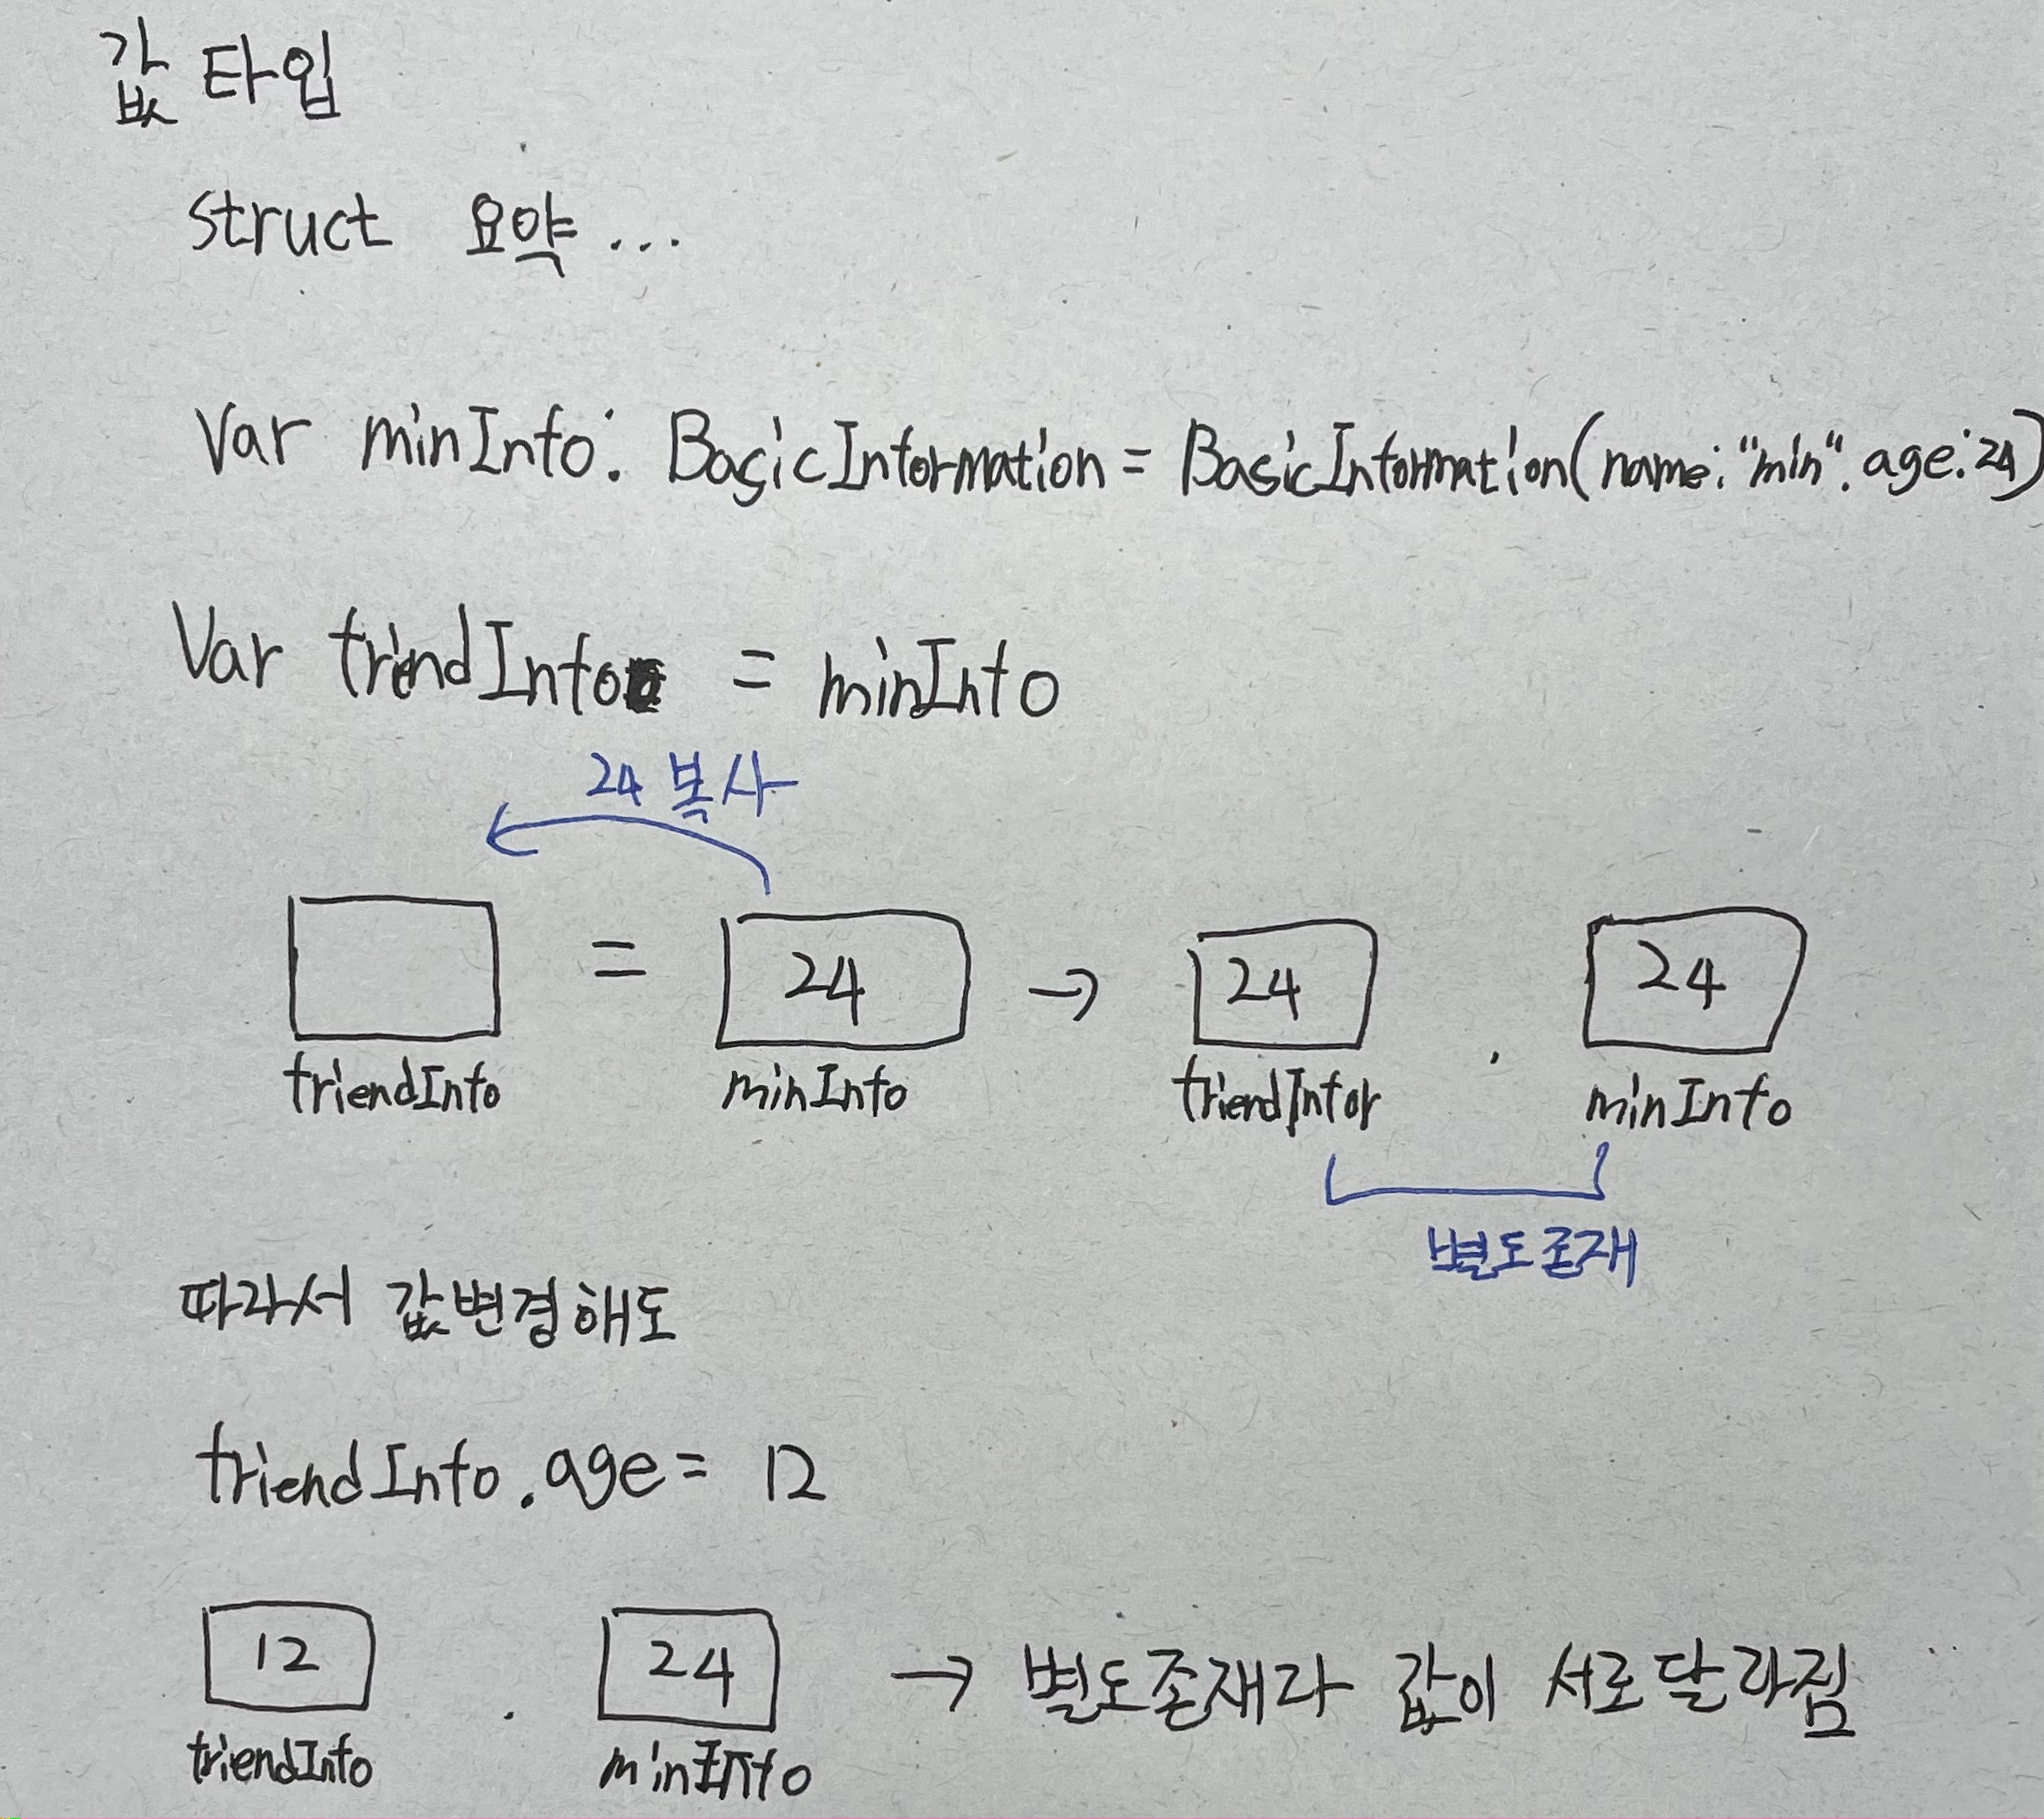 값 타입
struct 요약...
Var minInfo: BasicInformation = BasicInformation(name: "min". age: 24)
Var friendInfo = minInfo
24 복사
= 24 → 24 . 24
friendInfo minInfo friendInfor minInfo
별도존재
따라서 값변경해도
friendInfo.age = 12
12 . 24 → 별도존재라 값이 서로달라짐
friendInfo minInfo